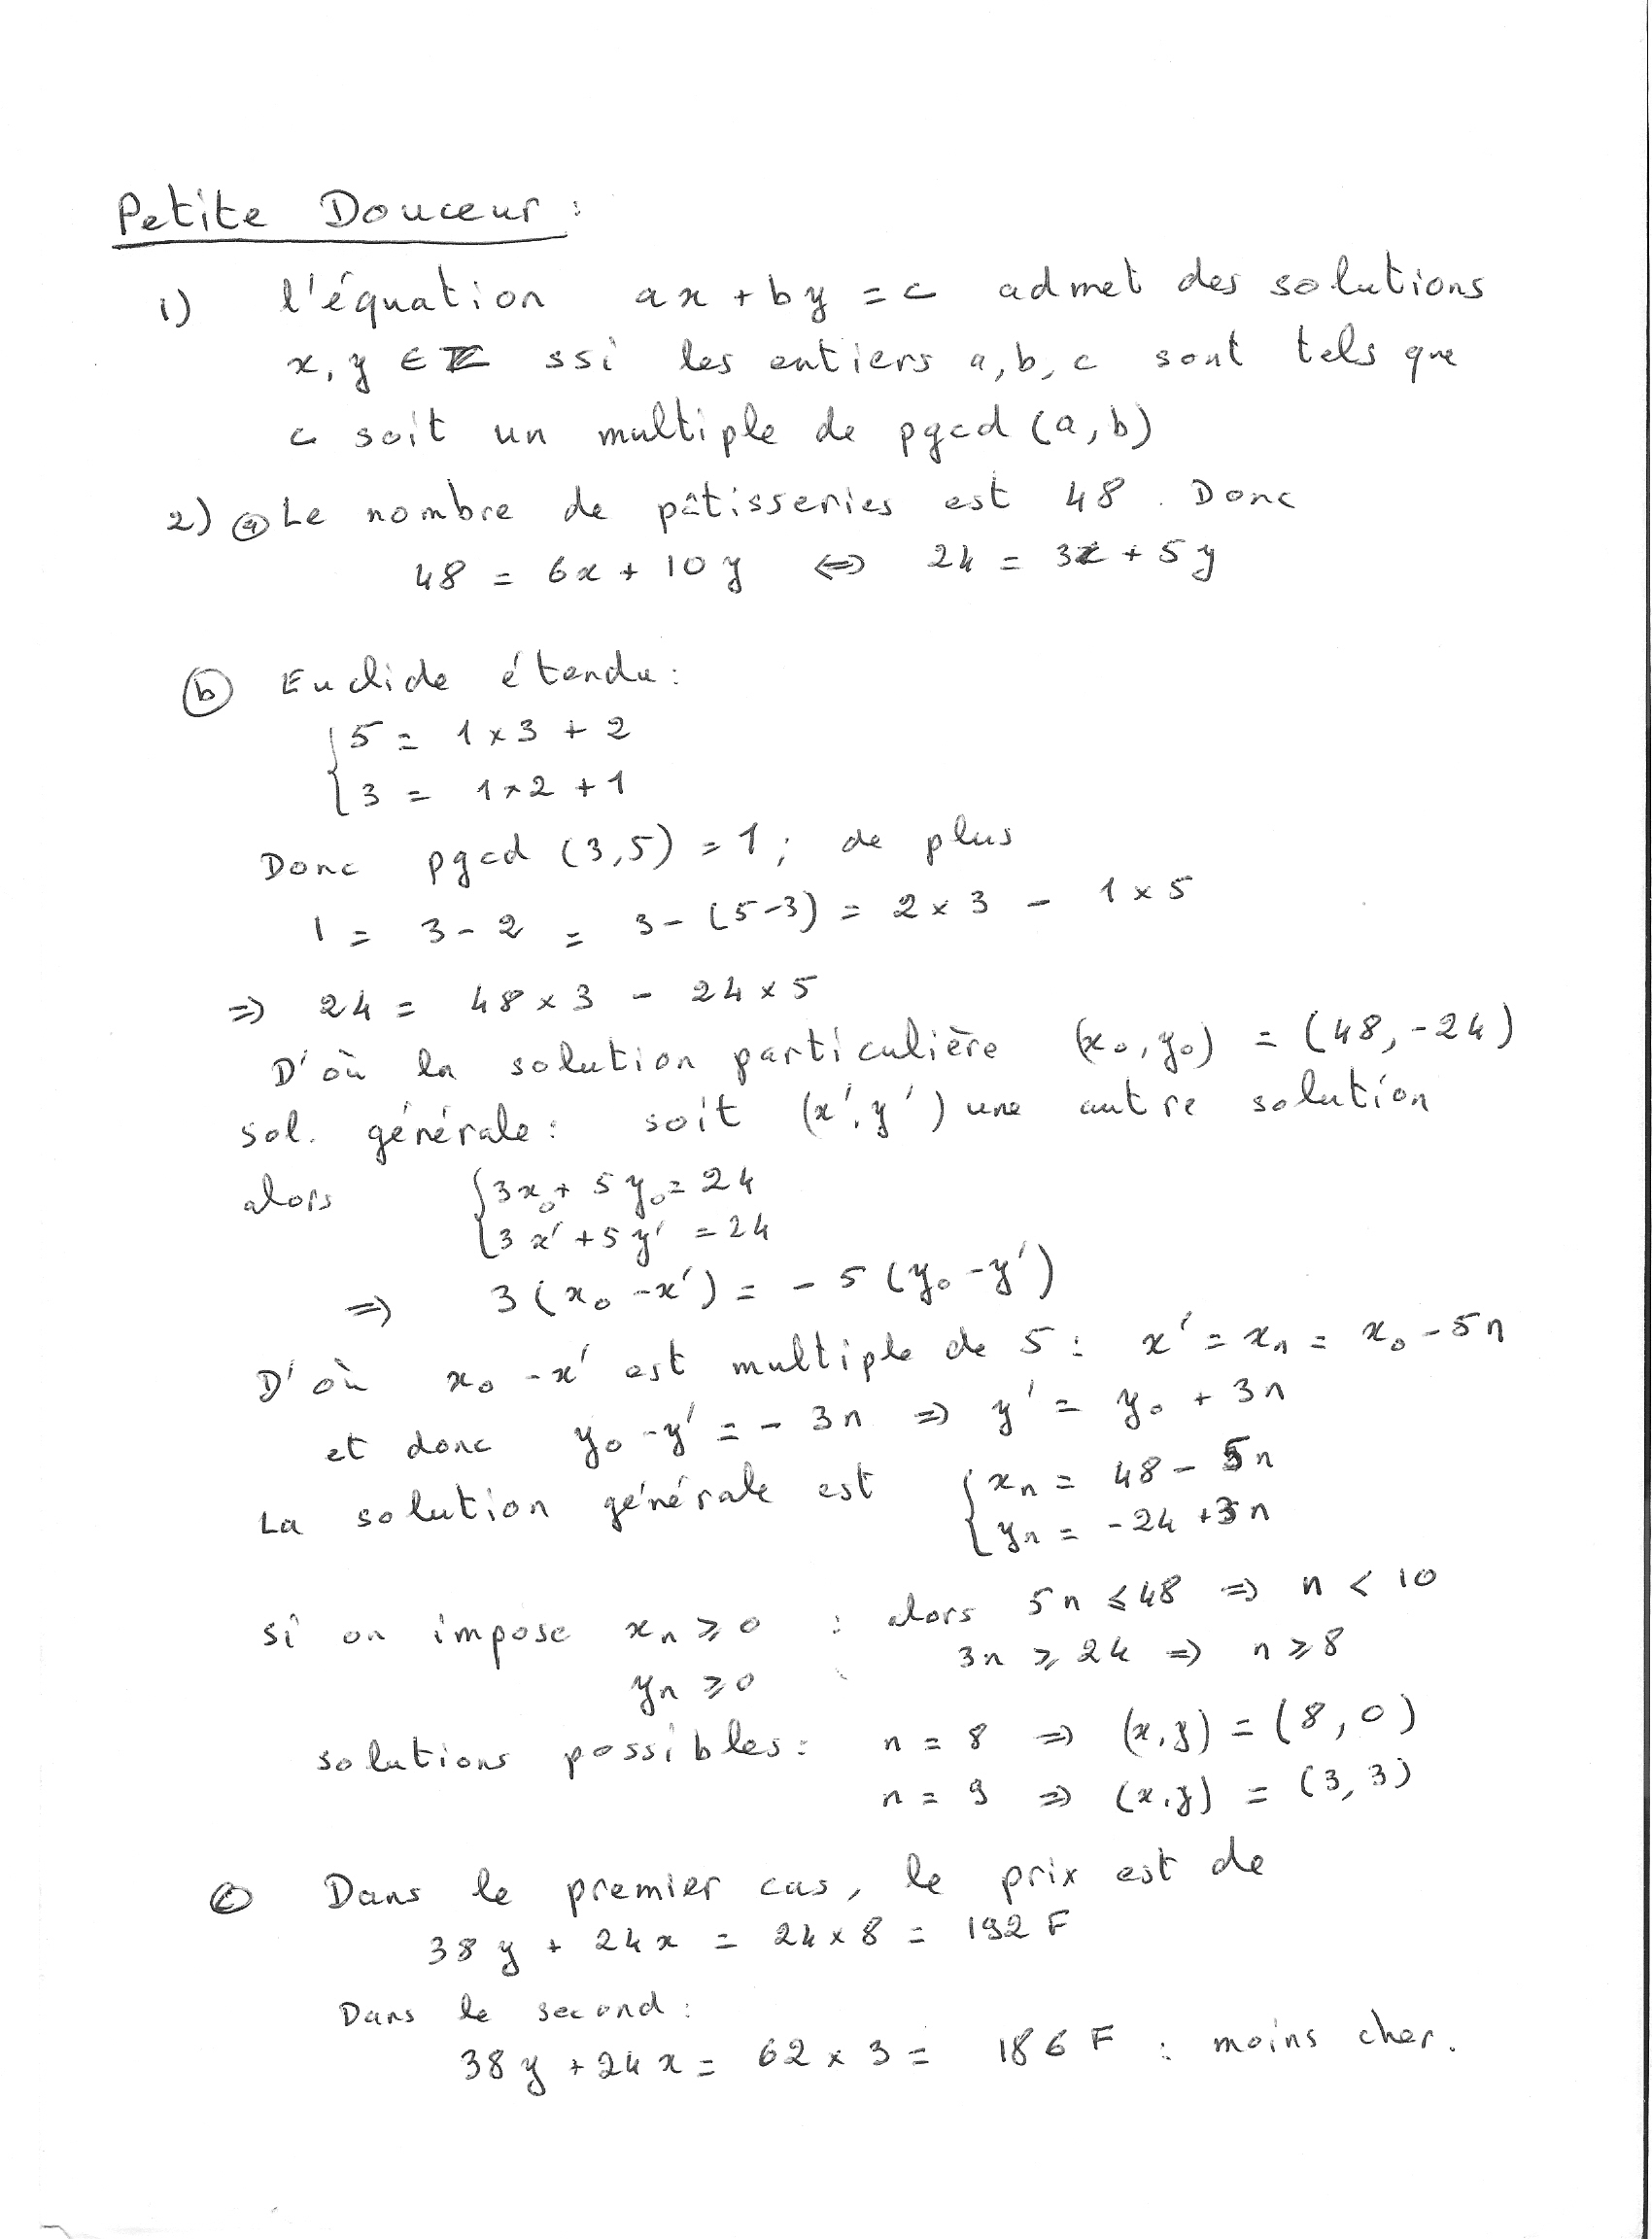 Petite Douceur :
1) l'équation ax + by = c admet des solutions
x, y ∈ Z ssi les entiers a, b, c sont tels que
c soit un multiple de pgcd (a, b)
2) ⓐ Le nombre de pâtisseries est 48. Donc
48 = 6x + 10y ⇔ 24 = 3x + 5y
ⓑ Euclide étendu :
5 = 1 × 3 + 2
3 = 1 × 2 + 1
Donc pgcd (3,5) = 1 ; de plus
1 = 3 - 2 = 3 - (5-3) = 2 × 3 - 1 × 5
⇒ 24 = 48 × 3 - 24 × 5
D'où la solution particulière (x₀, y₀) = (48, -24)
sol. générale : soit (x', y') une autre solution
alors { 3x₀ + 5y₀ = 24
3x' + 5y' = 24
⇒ 3(x₀ - x') = - 5(y₀ - y')
D'où x₀ - x' est multiple de 5 : x' = xₙ = x₀ - 5n
et donc y₀ - y' = - 3n ⇒ y' = y₀ + 3n
La solution générale est { xₙ = 48 - 5n
yₙ = -24 + 3n
si on impose xₙ ⩾ 0 : alors 5n ⩽ 48 ⇒ n < 10
yₙ ⩾ 0 3n ⩾ 24 ⇒ n ⩾ 8
solutions possibles : n = 8 ⇒ (x, y) = (8, 0)
n = 9 ⇒ (x, y) = (3, 3)
ⓒ Dans le premier cas, le prix est de
38y + 24x = 24 × 8 = 192 F
Dans le second :
38y + 24x = 62 × 3 = 186 F : moins cher.